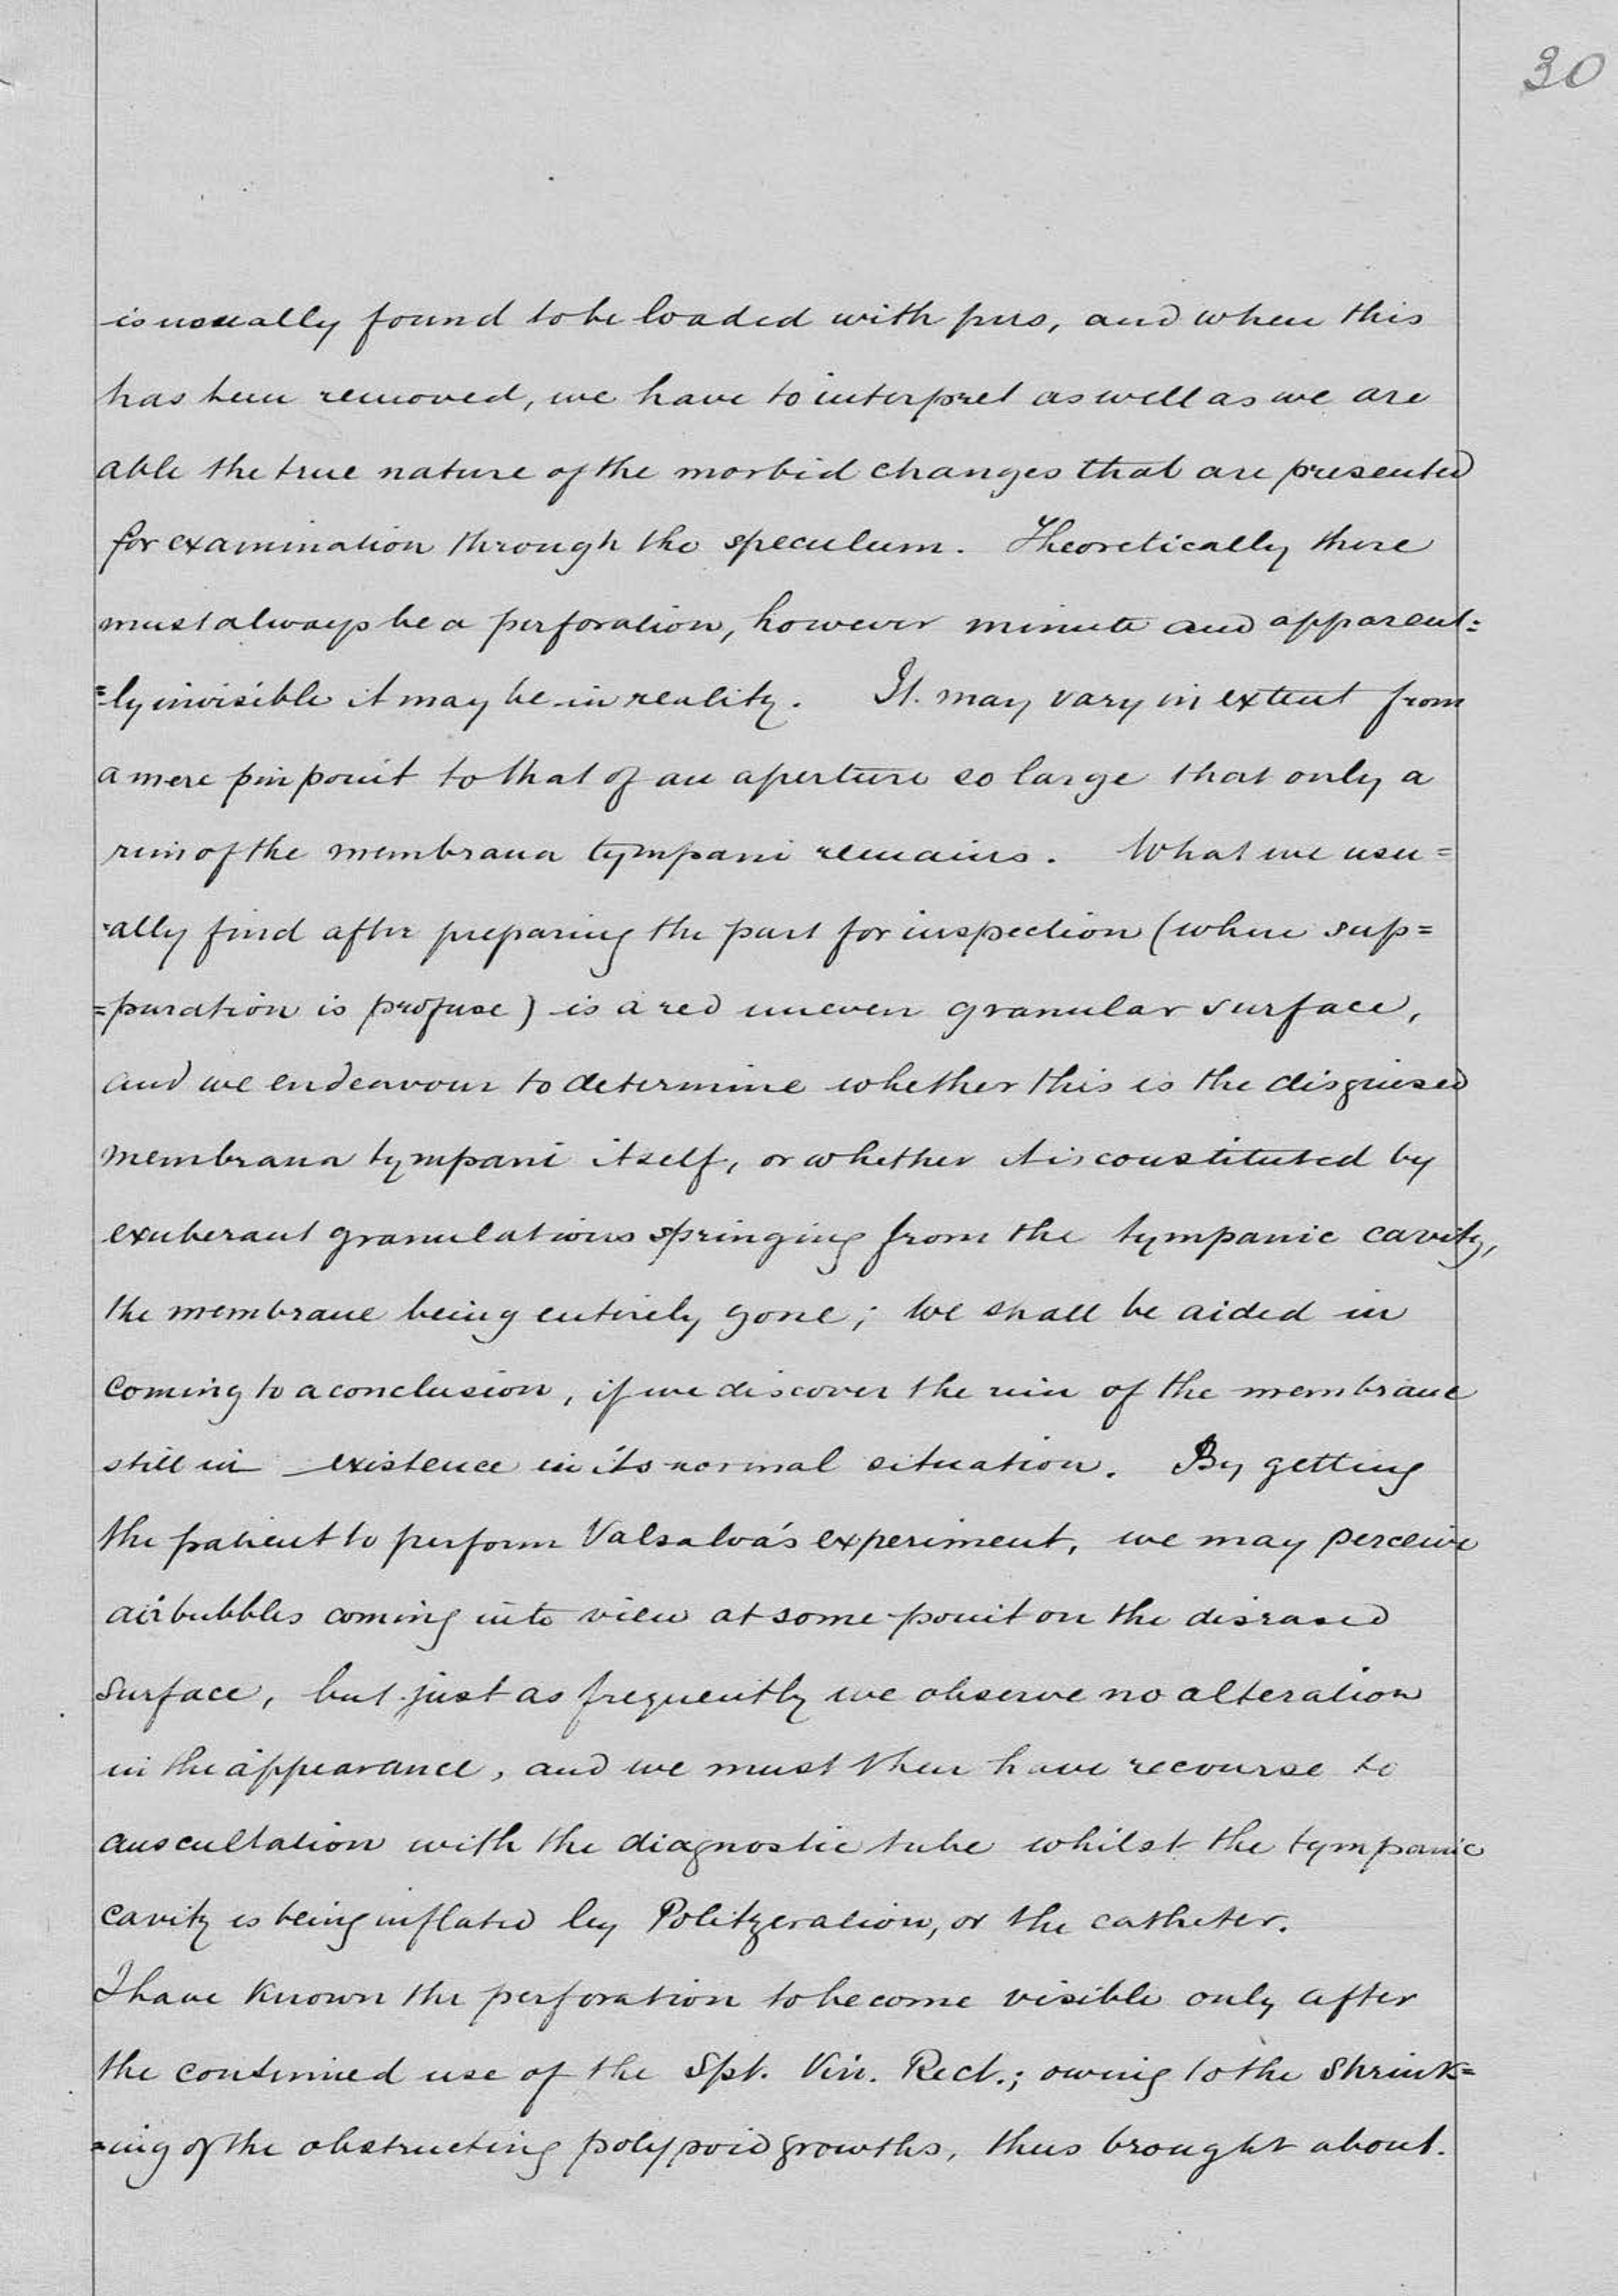 30
is usually found to be loaded with pus, and when this
has been removed, we have to interpret as well as we are
able the true nature of the morbid changes that are presented
for examination through the speculum. Theoretically there
must always be a perforation, however minute and apparent=
=ly invisible it may be in reality. It may vary in extent from
a mere pin point to that of an aperture so large that only a
rim of the membrana tympani remains. What we usu=
=ally find after preparing the part for inspection (where sup=
=puration is profuse) is a red uneven granular surface,
and we endeavour to determine whether this is the disguised
membrana tympani itself, or whether it is constituted by
exuberant granulations springing from the tympanic cavity,
the membrane being entirely gone; we shall be aided in
coming to a conclusion, if we discover the rim of the membrane
still in existence in its normal situation. By getting
the patient to perform Valsalva's experiment, we may perceive
air bubbles coming into view at some point on the diseased
surface, but just as frequently we observe no alteration
in the appearance, and we must then have recourse to
auscultation with the diagnostic tube whilst the tympanic
cavity is being inflated by Politzeration, or the catheter.
I have known the perforation to become visible only after
the continued use of the Spt. Vin. Rect.; owing to the shrink=
=ing of the obstructing polypoid growths, thus brought about.